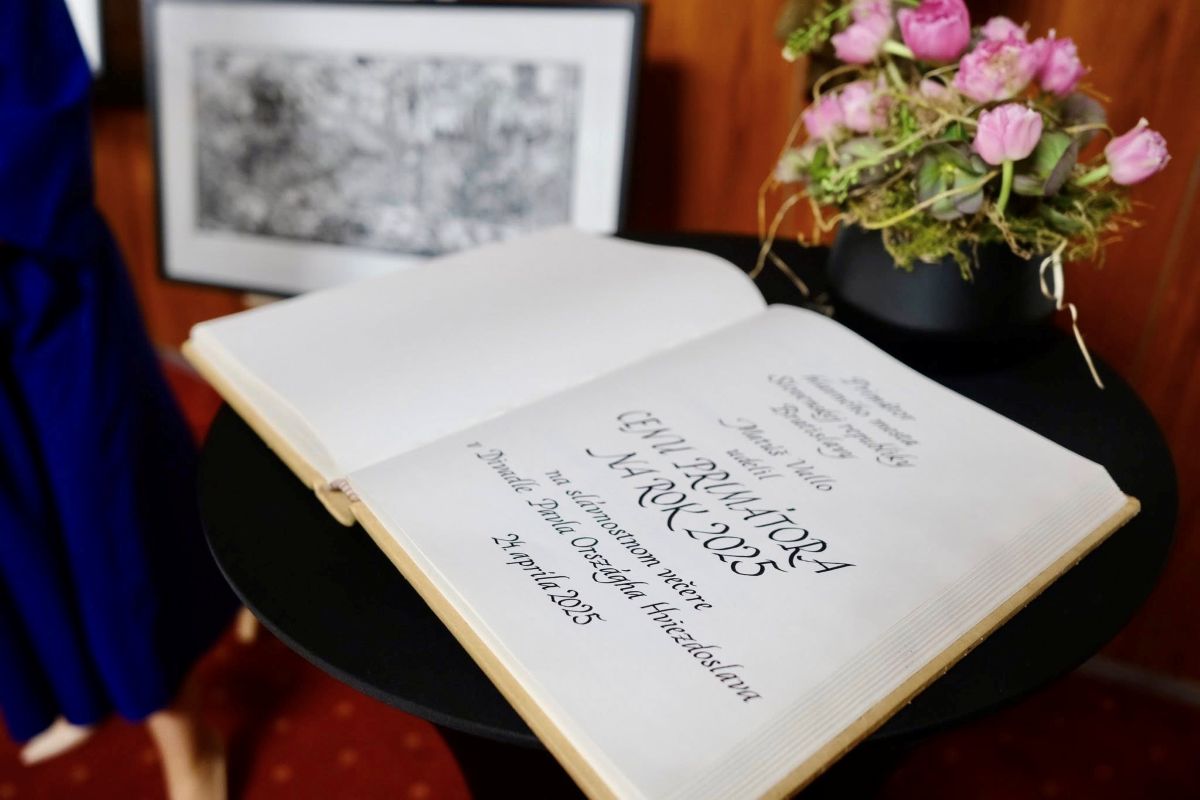 Primátor
hlavného mesta
Slovenskej republiky
Bratislavy
Matúš Vallo
udelil
CENU PRIMÁTORA
NA ROK 2025
na slávnostnom večere
v Divadle Pavla Országha Hviezdoslava
24. apríla 2025